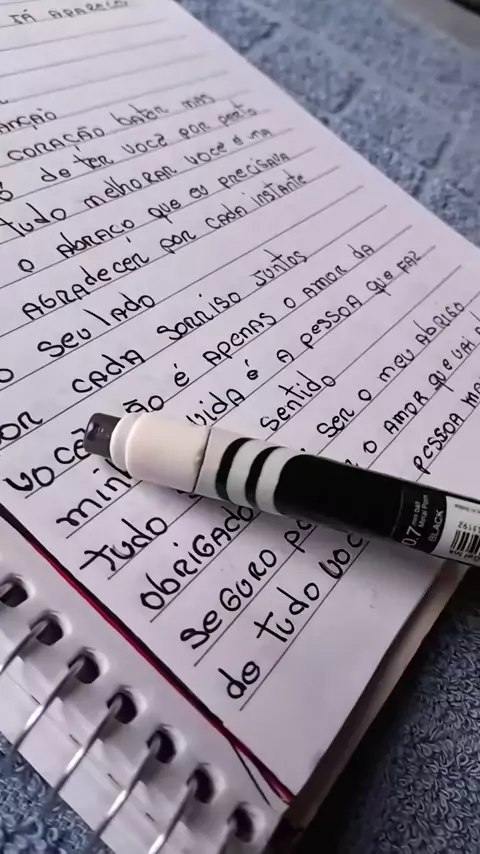 TÁ APAREÇO
ANÇÃO
CORAÇÃO bATER MAS
de TER VOCÊ POR PERTO
TUDO MELHORAR VOCÊ É MA
O ABRAÇO QUE EU PRECISAVA
AGRADECER POR CADA INSTANTE
O SEU LADO
OR CADA SORRISO JUNTOS
VOCÊ ÃO É APENAS O AMOR DA
MIN VIDA É A PESSOA QUE FAZ
TUDO SENTIDO
OBRIGADO SER O MEU ABRIGO
SEGURO PO O AMOR QUE VAI
de TUDO VOC PESSOA MA
0.7 mm ball
Metal Point
BLACK